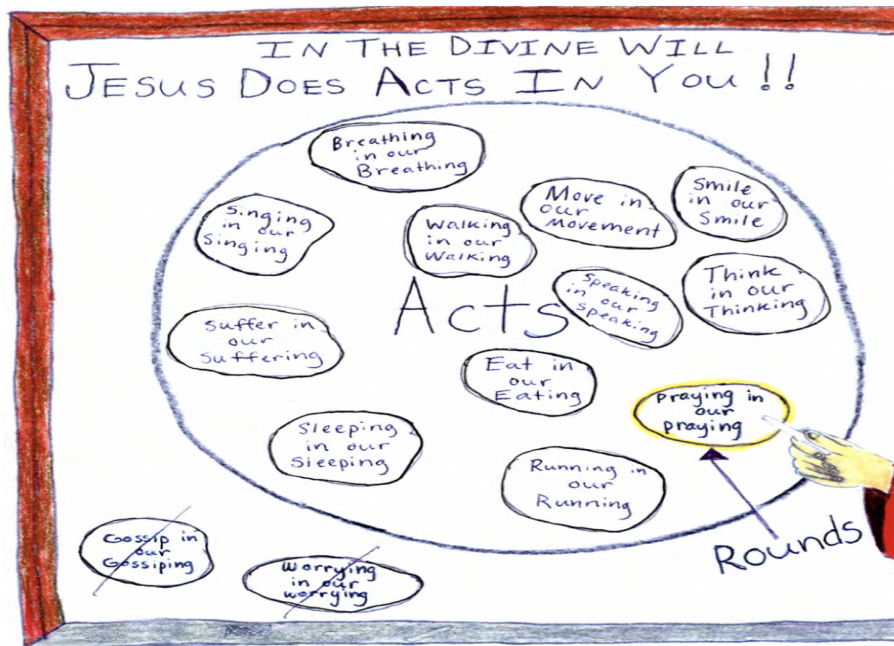 IN THE DIVINE WILL
JESUS DOES ACTS IN YOU!!
Breathing
in our
Breathing
Singing
in our
Singing
Walking
in our
Walking
Move in
our
Movement
Smile
in our
Smile
Suffer in
our
Suffering
Acts
Speaking
in our
Speaking
Think
in our
Thinking
Eat in
our
Eating
Praying in
our
praying
Sleeping
in our
Sleeping
Running in
our
Running
Rounds
Gossip in
our
Gossiping
Worrying
in our
worrying